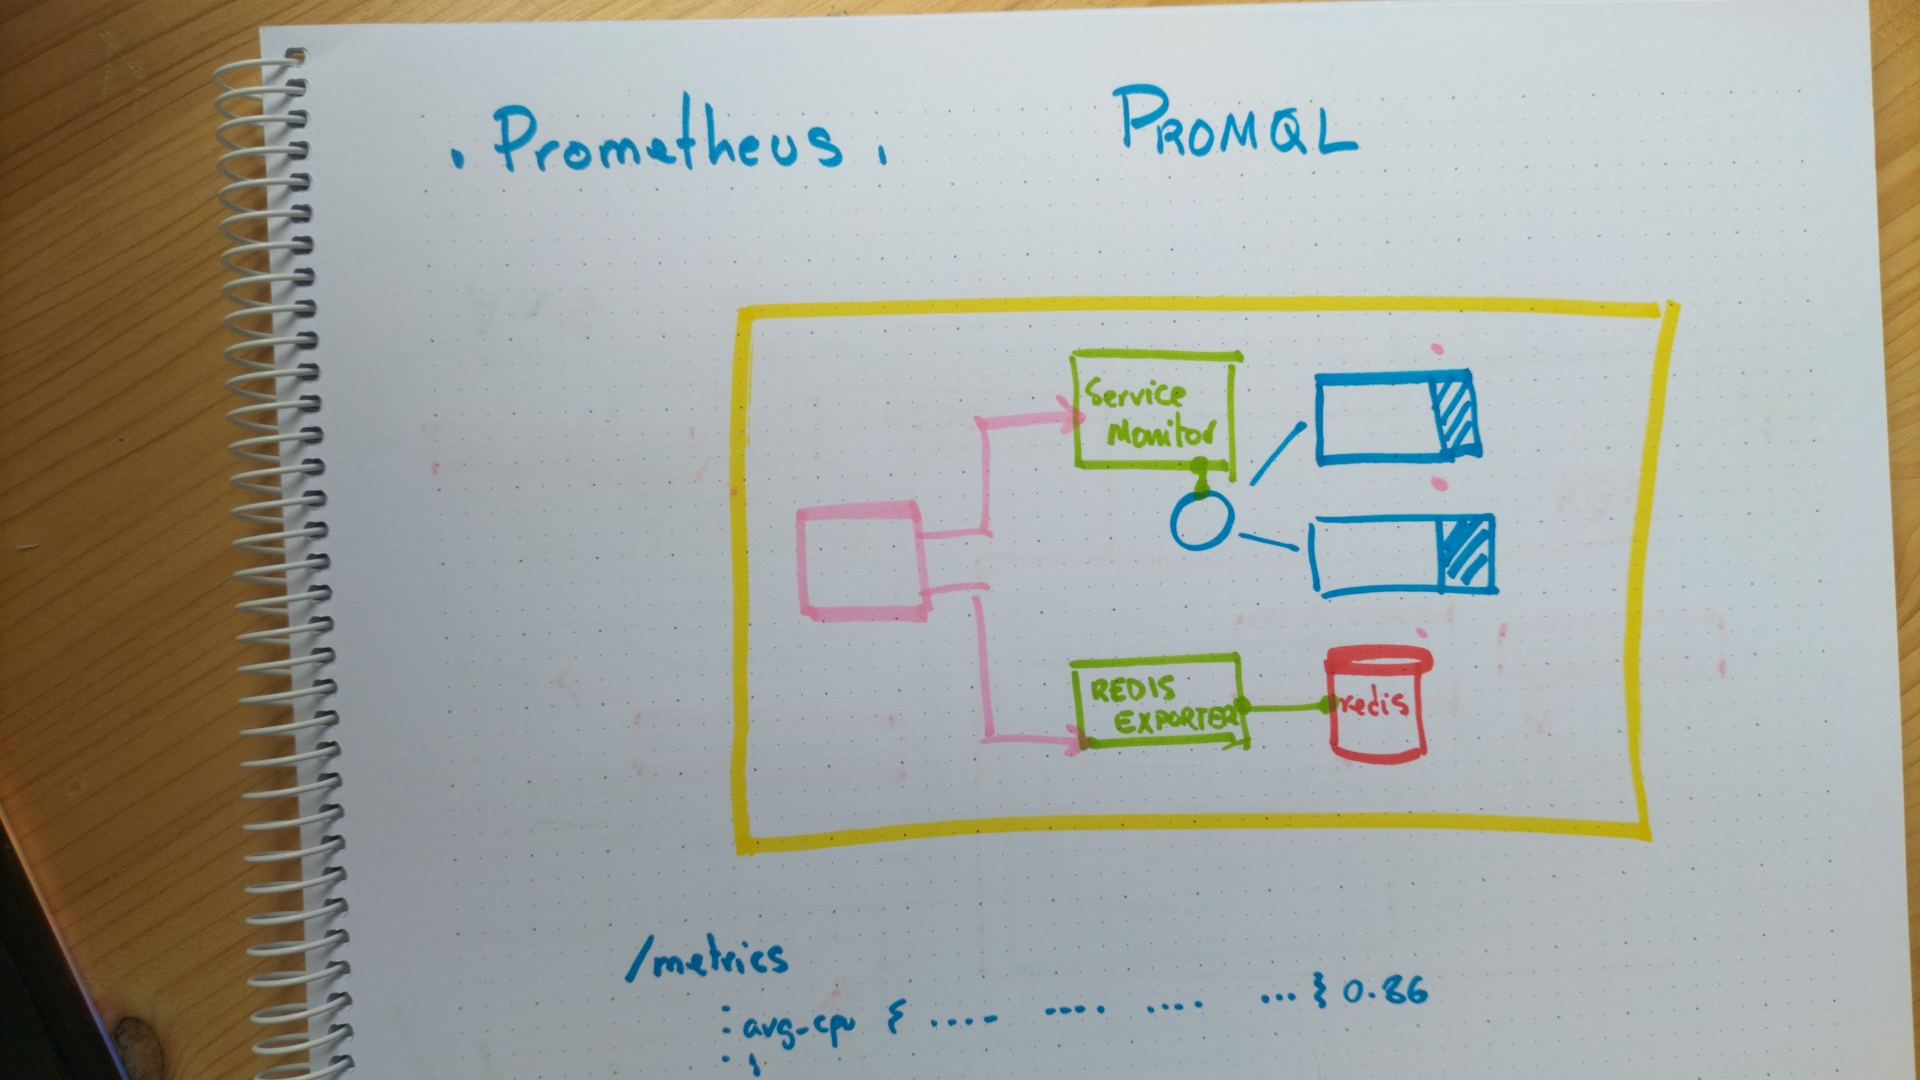 . Prometheus .
PROMQL
Service
Monitor
REDIS
EXPORTER
redis
/metrics
: avg-cpu { .... .... .... ... } 0.86